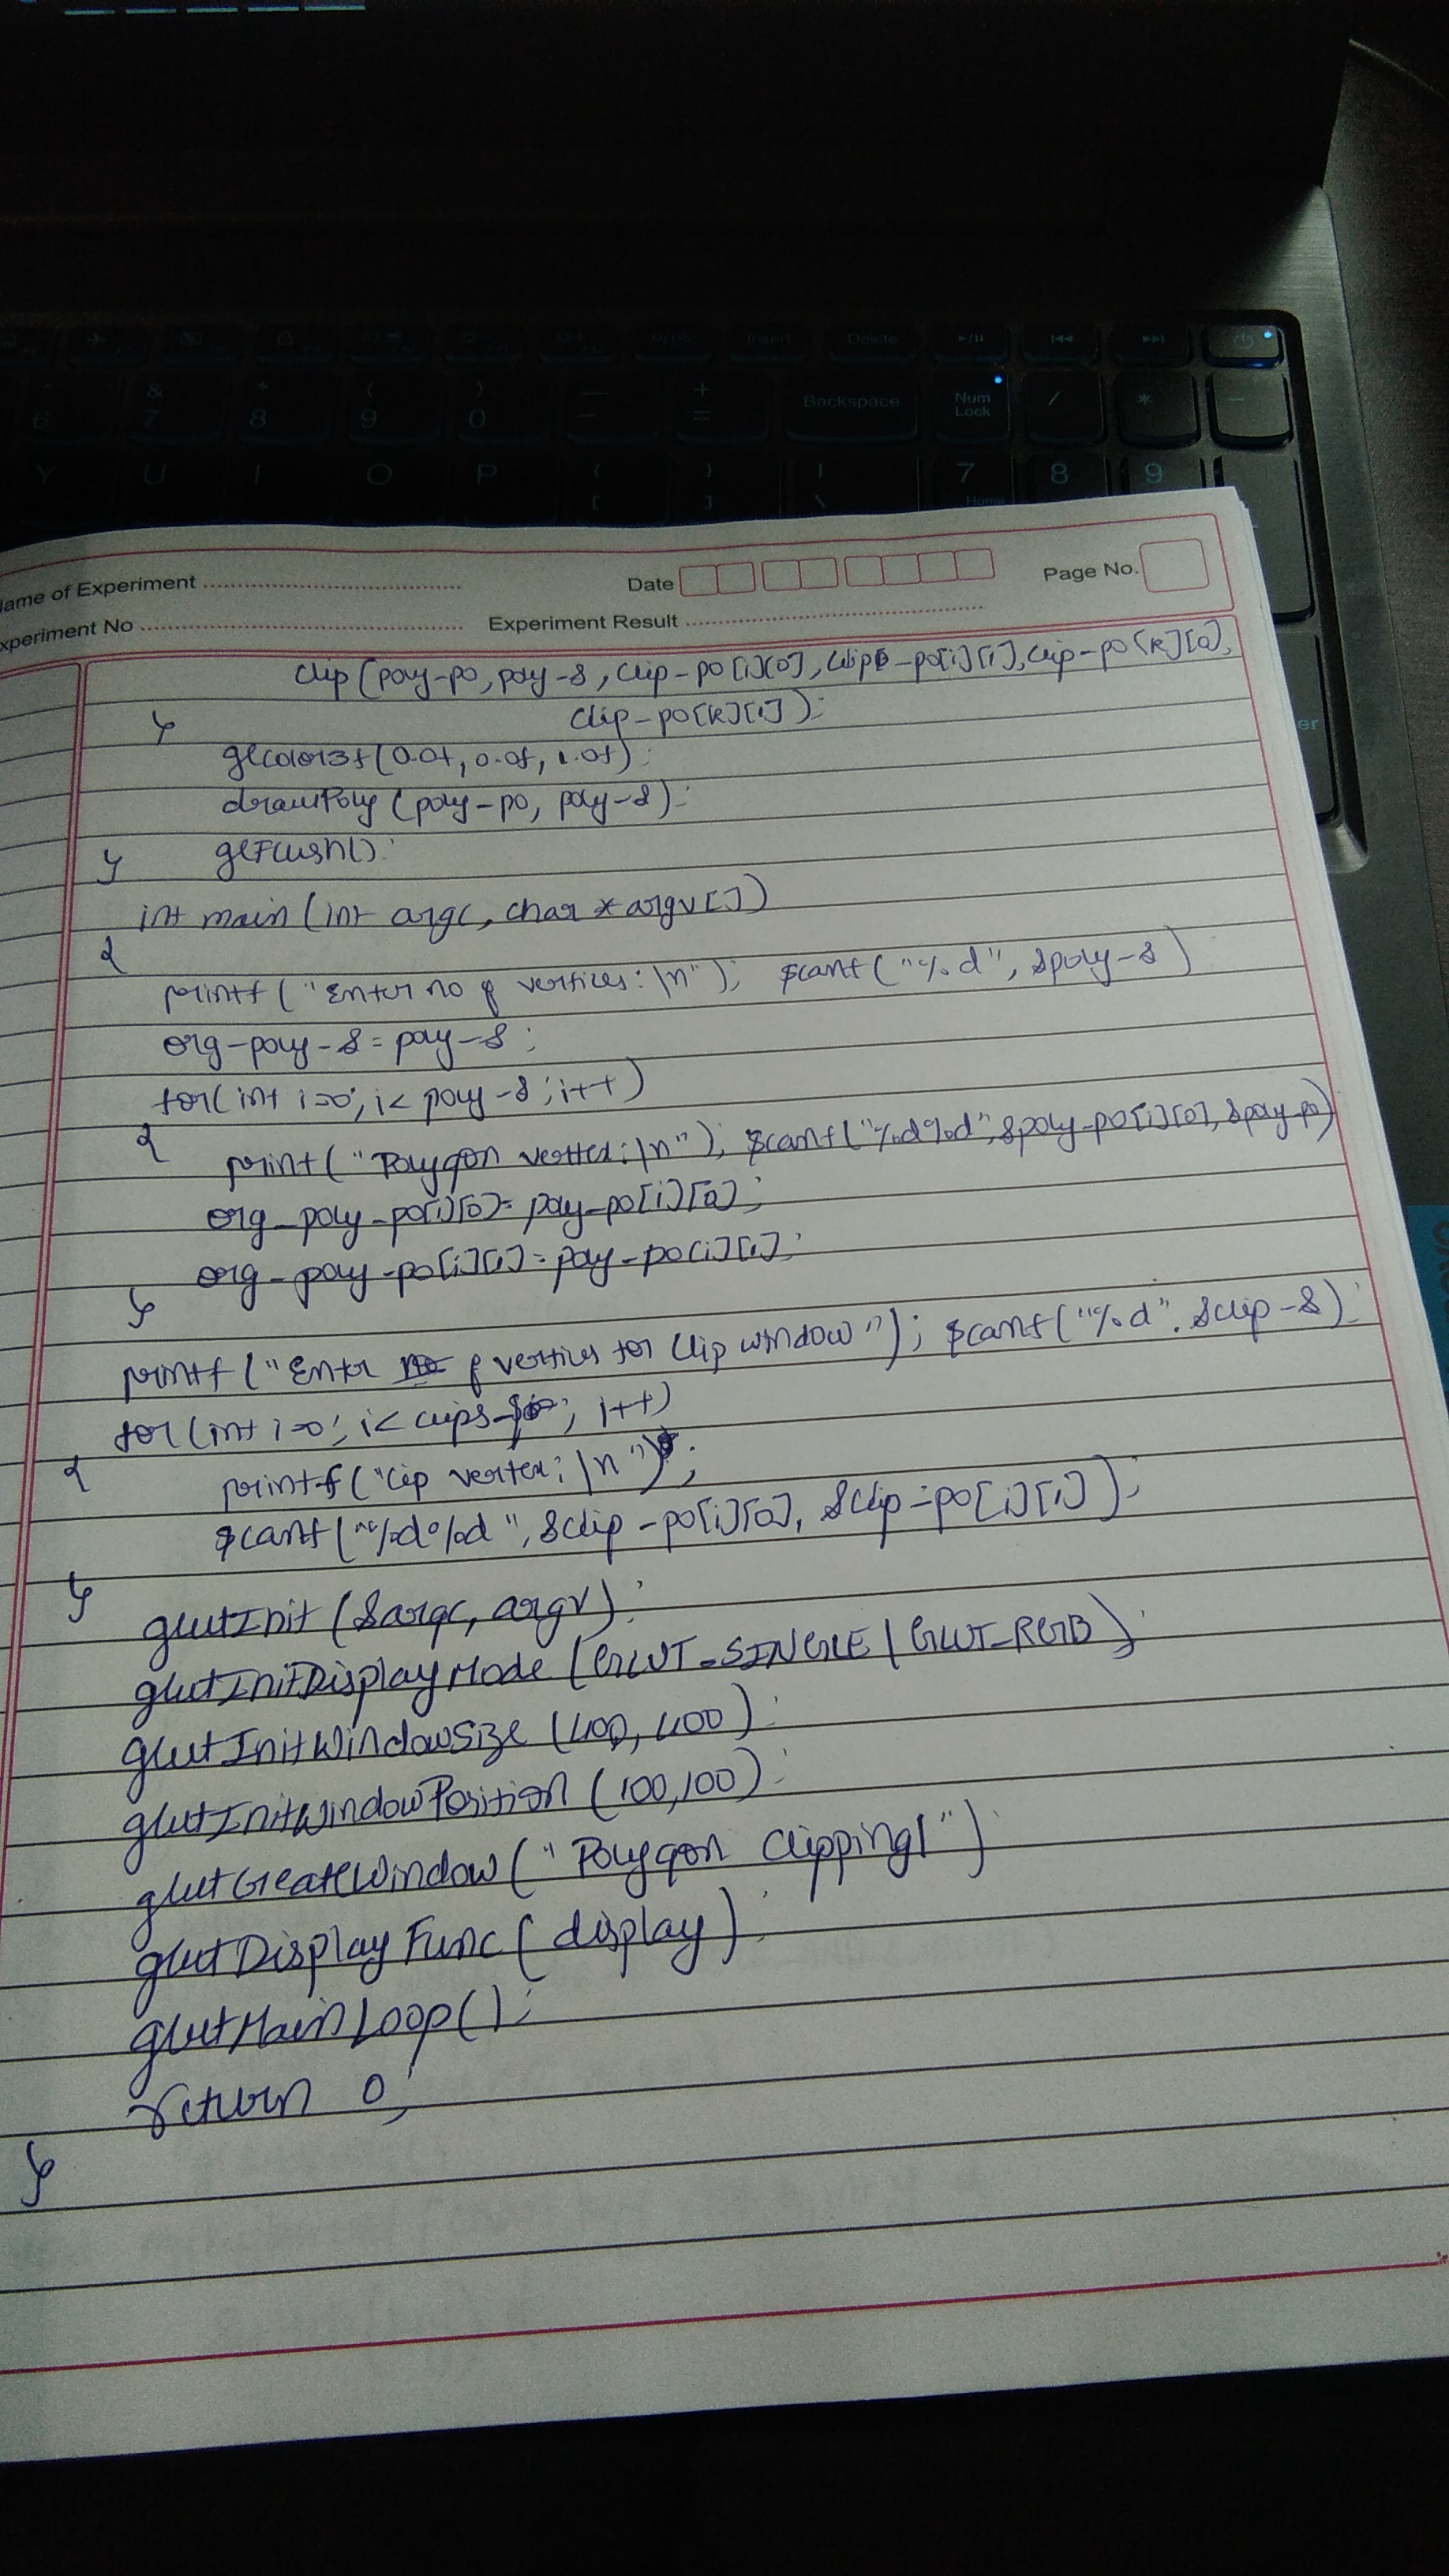 6 7 8 9 0 Backspace Num Lock / * -
Insert Delete
Y U I O P 7 8 9
Home
Name of Experiment Date Page No.
Experiment No Experiment Result
clip(poly-po, poly-s, clip-po[i][0], clip-po[i][1], clip-po[k][0],
} clip-po[k][1]);
glcolor3f(0.0f, 0.0f, 1.0f);
drawPoly(poly-po, poly-s);
} glFlush();
int main(int argc, char *argv[])
{
printf("Enter no of vertices:\n"); scanf("%d", &poly-s)
org-poly-s = poly-s;
for(int i=0; i< poly-s; i++)
{
print("Polygon vertex:\n"); scanf("%d%d", &poly-po[i][0], &poly-po)
org-poly-po[i][0] = poly-po[i][0];
org-poly-po[i][1] = poly-po[i][1];
}
printf("Enter no of vertices for clip window"); scanf("%d", &clip-s);
for(int i=0; i< ; i++)
{
printf("clip vertex:\n");
scanf("%d%d", &clip-po[i][0], &clip-po[i][1]);
}
glutInit(&argc, argv);
glutInitDisplayMode(GLUT_SINGLE | GLUT_RGB);
glutInitWindowSize(400, 400);
glutInitWindowPosition(100,100);
glutCreateWindow("Polygon Clipping!")
glutDisplayFunc(display);
glutMainLoop();
return 0;
}